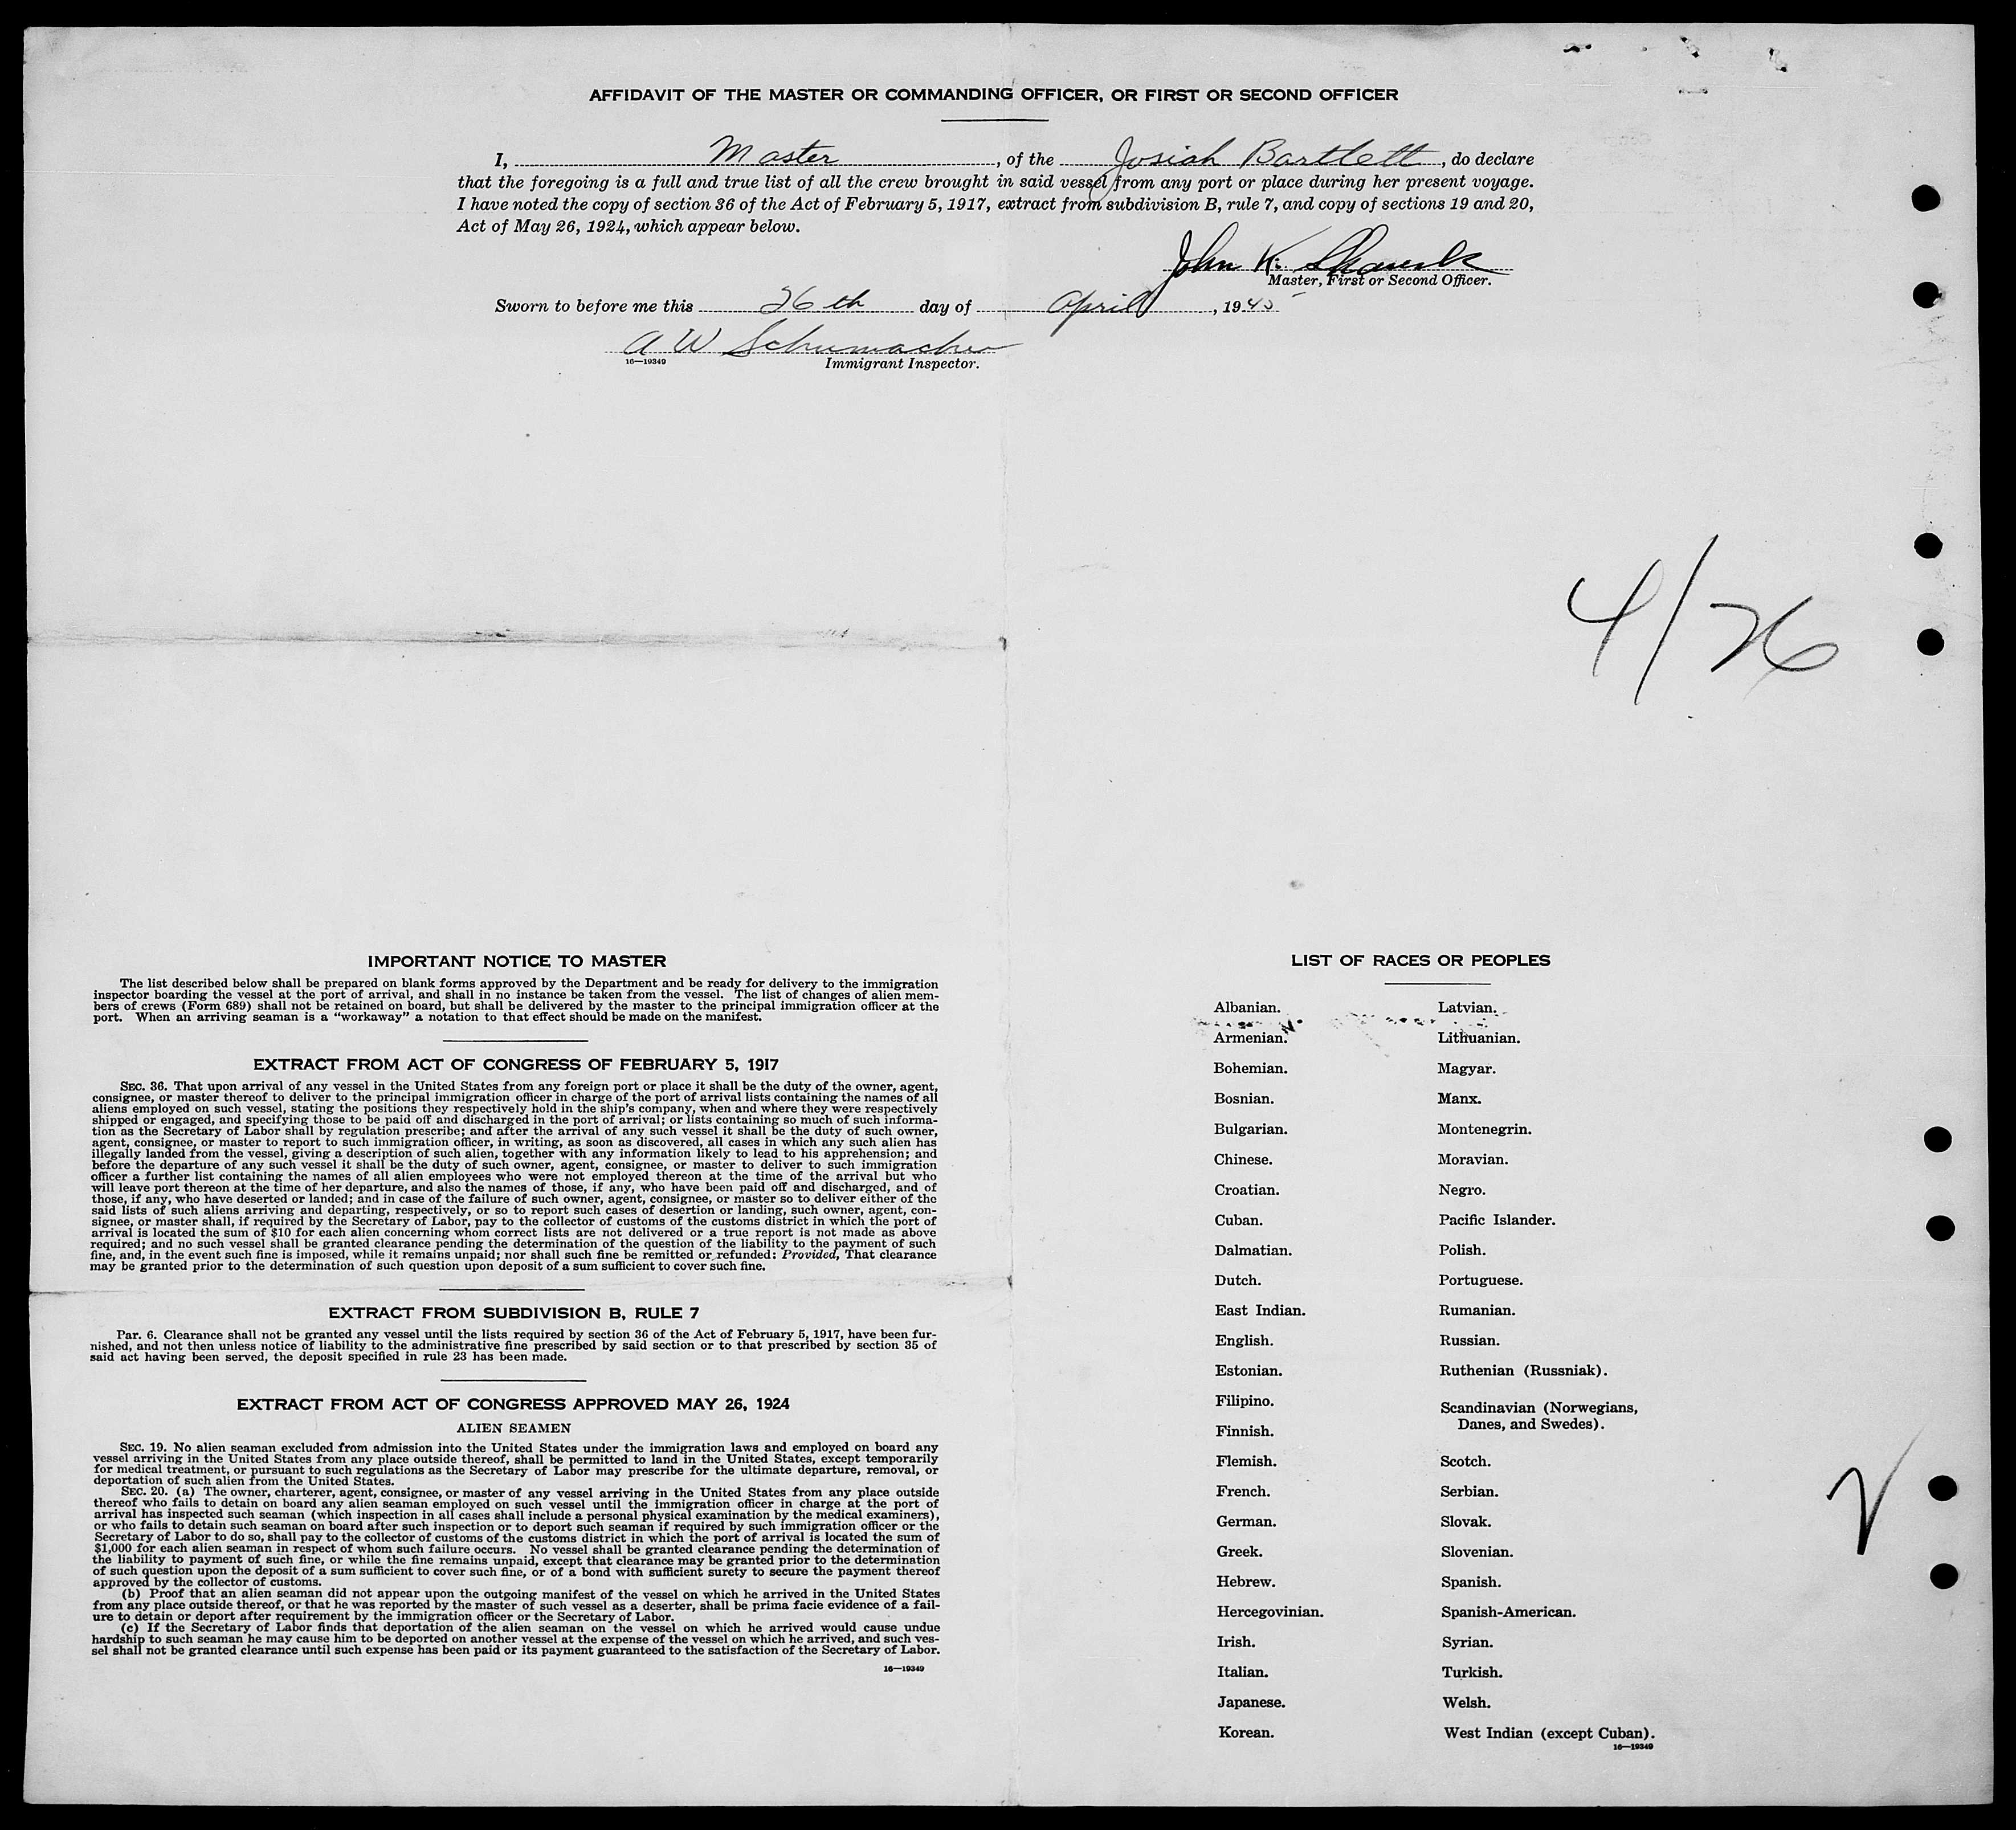 AFFIDAVIT OF THE MASTER OR COMMANDING OFFICER, OR FIRST OR SECOND OFFICER
I, Master, of the Josiah Bartlett, do declare
that the foregoing is a full and true list of all the crew brought in said vessel from any port or place during her present voyage.
I have noted the copy of section 36 of the Act of February 5, 1917, extract from subdivision B, rule 7, and copy of sections 19 and 20,
Act of May 26, 1924, which appear below.
John K.
Master, First or Second Officer.
Sworn to before me this 26th day of April, 1945
A W Schumacher
16—19349 Immigrant Inspector.
4/26
IMPORTANT NOTICE TO MASTER
The list described below shall be prepared on blank forms approved by the Department and be ready for delivery to the immigration
inspector boarding the vessel at the port of arrival, and shall in no instance be taken from the vessel. The list of changes of alien mem-
bers of crews (Form 689) shall not be retained on board, but shall be delivered by the master to the principal immigration officer at the
port. When an arriving seaman is a "workaway" a notation to that effect should be made on the manifest.
EXTRACT FROM ACT OF CONGRESS OF FEBRUARY 5, 1917
SEC. 36. That upon arrival of any vessel in the United States from any foreign port or place it shall be the duty of the owner, agent,
consignee, or master thereof to deliver to the principal immigration officer in charge of the port of arrival lists containing the names of all
aliens employed on such vessel, stating the positions they respectively hold in the ship's company, when and where they were respectively
shipped or engaged, and specifying those to be paid off and discharged in the port of arrival; or lists containing so much of such informa-
tion as the Secretary of Labor shall by regulation prescribe; and after the arrival of any such vessel it shall be the duty of such owner,
agent, consignee, or master to report to such immigration officer, in writing, as soon as discovered, all cases in which any such alien has
illegally landed from the vessel, giving a description of such alien, together with any information likely to lead to his apprehension; and
before the departure of any such vessel it shall be the duty of such owner, agent, consignee, or master to deliver to such immigration
officer a further list containing the names of all alien employees who were not employed thereon at the time of the arrival but who
will leave port thereon at the time of her departure, and also the names of those, if any, who have been paid off and discharged, and of
those, if any, who have deserted or landed; and in case of the failure of such owner, agent, consignee, or master so to deliver either of the
said lists of such aliens arriving and departing, respectively, or so to report such cases of desertion or landing, such owner, agent, con-
signee, or master shall, if required by the Secretary of Labor, pay to the collector of customs of the customs district in which the port of
arrival is located the sum of $10 for each alien concerning whom correct lists are not delivered or a true report is not made as above
required; and no such vessel shall be granted clearance pending the determination of the question of the liability to the payment of such
fine, and, in the event such fine is imposed, while it remains unpaid; nor shall such fine be remitted or refunded: Provided, That clearance
may be granted prior to the determination of such question upon deposit of a sum sufficient to cover such fine.
EXTRACT FROM SUBDIVISION B, RULE 7
Par. 6. Clearance shall not be granted any vessel until the lists required by section 36 of the Act of February 5, 1917, have been fur-
nished, and not then unless notice of liability to the administrative fine prescribed by said section or to that prescribed by section 35 of
said act having been served, the deposit specified in rule 23 has been made.
EXTRACT FROM ACT OF CONGRESS APPROVED MAY 26, 1924
ALIEN SEAMEN
SEC. 19. No alien seaman excluded from admission into the United States under the immigration laws and employed on board any
vessel arriving in the United States from any place outside thereof, shall be permitted to land in the United States, except temporarily
for medical treatment, or pursuant to such regulations as the Secretary of Labor may prescribe for the ultimate departure, removal, or
deportation of such alien from the United States.
SEC. 20. (a) The owner, charterer, agent, consignee, or master of any vessel arriving in the United States from any place outside
thereof who fails to detain on board any alien seaman employed on such vessel until the immigration officer in charge at the port of
arrival has inspected such seaman (which inspection in all cases shall include a personal physical examination by the medical examiners),
or who fails to detain such seaman on board after such inspection or to deport such seaman if required by such immigration officer or the
Secretary of Labor to do so, shall pay to the collector of customs of the customs district in which the port of arrival is located the sum of
$1,000 for each alien seaman in respect of whom such failure occurs. No vessel shall be granted clearance pending the determination of
the liability to payment of such fine, or while the fine remains unpaid, except that clearance may be granted prior to the determination
of such question upon the deposit of a sum sufficient to cover such fine, or of a bond with sufficient surety to secure the payment thereof
approved by the collector of customs.
(b) Proof that an alien seaman did not appear upon the outgoing manifest of the vessel on which he arrived in the United States
from any place outside thereof, or that he was reported by the master of such vessel as a deserter, shall be prima facie evidence of a fail-
ure to detain or deport after requirement by the immigration officer or the Secretary of Labor.
(c) If the Secretary of Labor finds that deportation of the alien seaman on the vessel on which he arrived would cause undue
hardship to such seaman he may cause him to be deported on another vessel at the expense of the vessel on which he arrived, and such ves-
sel shall not be granted clearance until such expense has been paid or its payment guaranteed to the satisfaction of the Secretary of Labor.
16—19349
LIST OF RACES OR PEOPLES
Albanian.
Armenian.
Bohemian.
Bosnian.
Bulgarian.
Chinese.
Croatian.
Cuban.
Dalmatian.
Dutch.
East Indian.
English.
Estonian.
Filipino.
Finnish.
Flemish.
French.
German.
Greek.
Hebrew.
Hercegovinian.
Irish.
Italian.
Japanese.
Korean.
Latvian.
Lithuanian.
Magyar.
Manx.
Montenegrin.
Moravian.
Negro.
Pacific Islander.
Polish.
Portuguese.
Rumanian.
Russian.
Ruthenian (Russniak).
Scandinavian (Norwegians,
Danes, and Swedes).
Scotch.
Serbian.
Slovak.
Slovenian.
Spanish.
Spanish-American.
Syrian.
Turkish.
Welsh.
West Indian (except Cuban).
16—19349